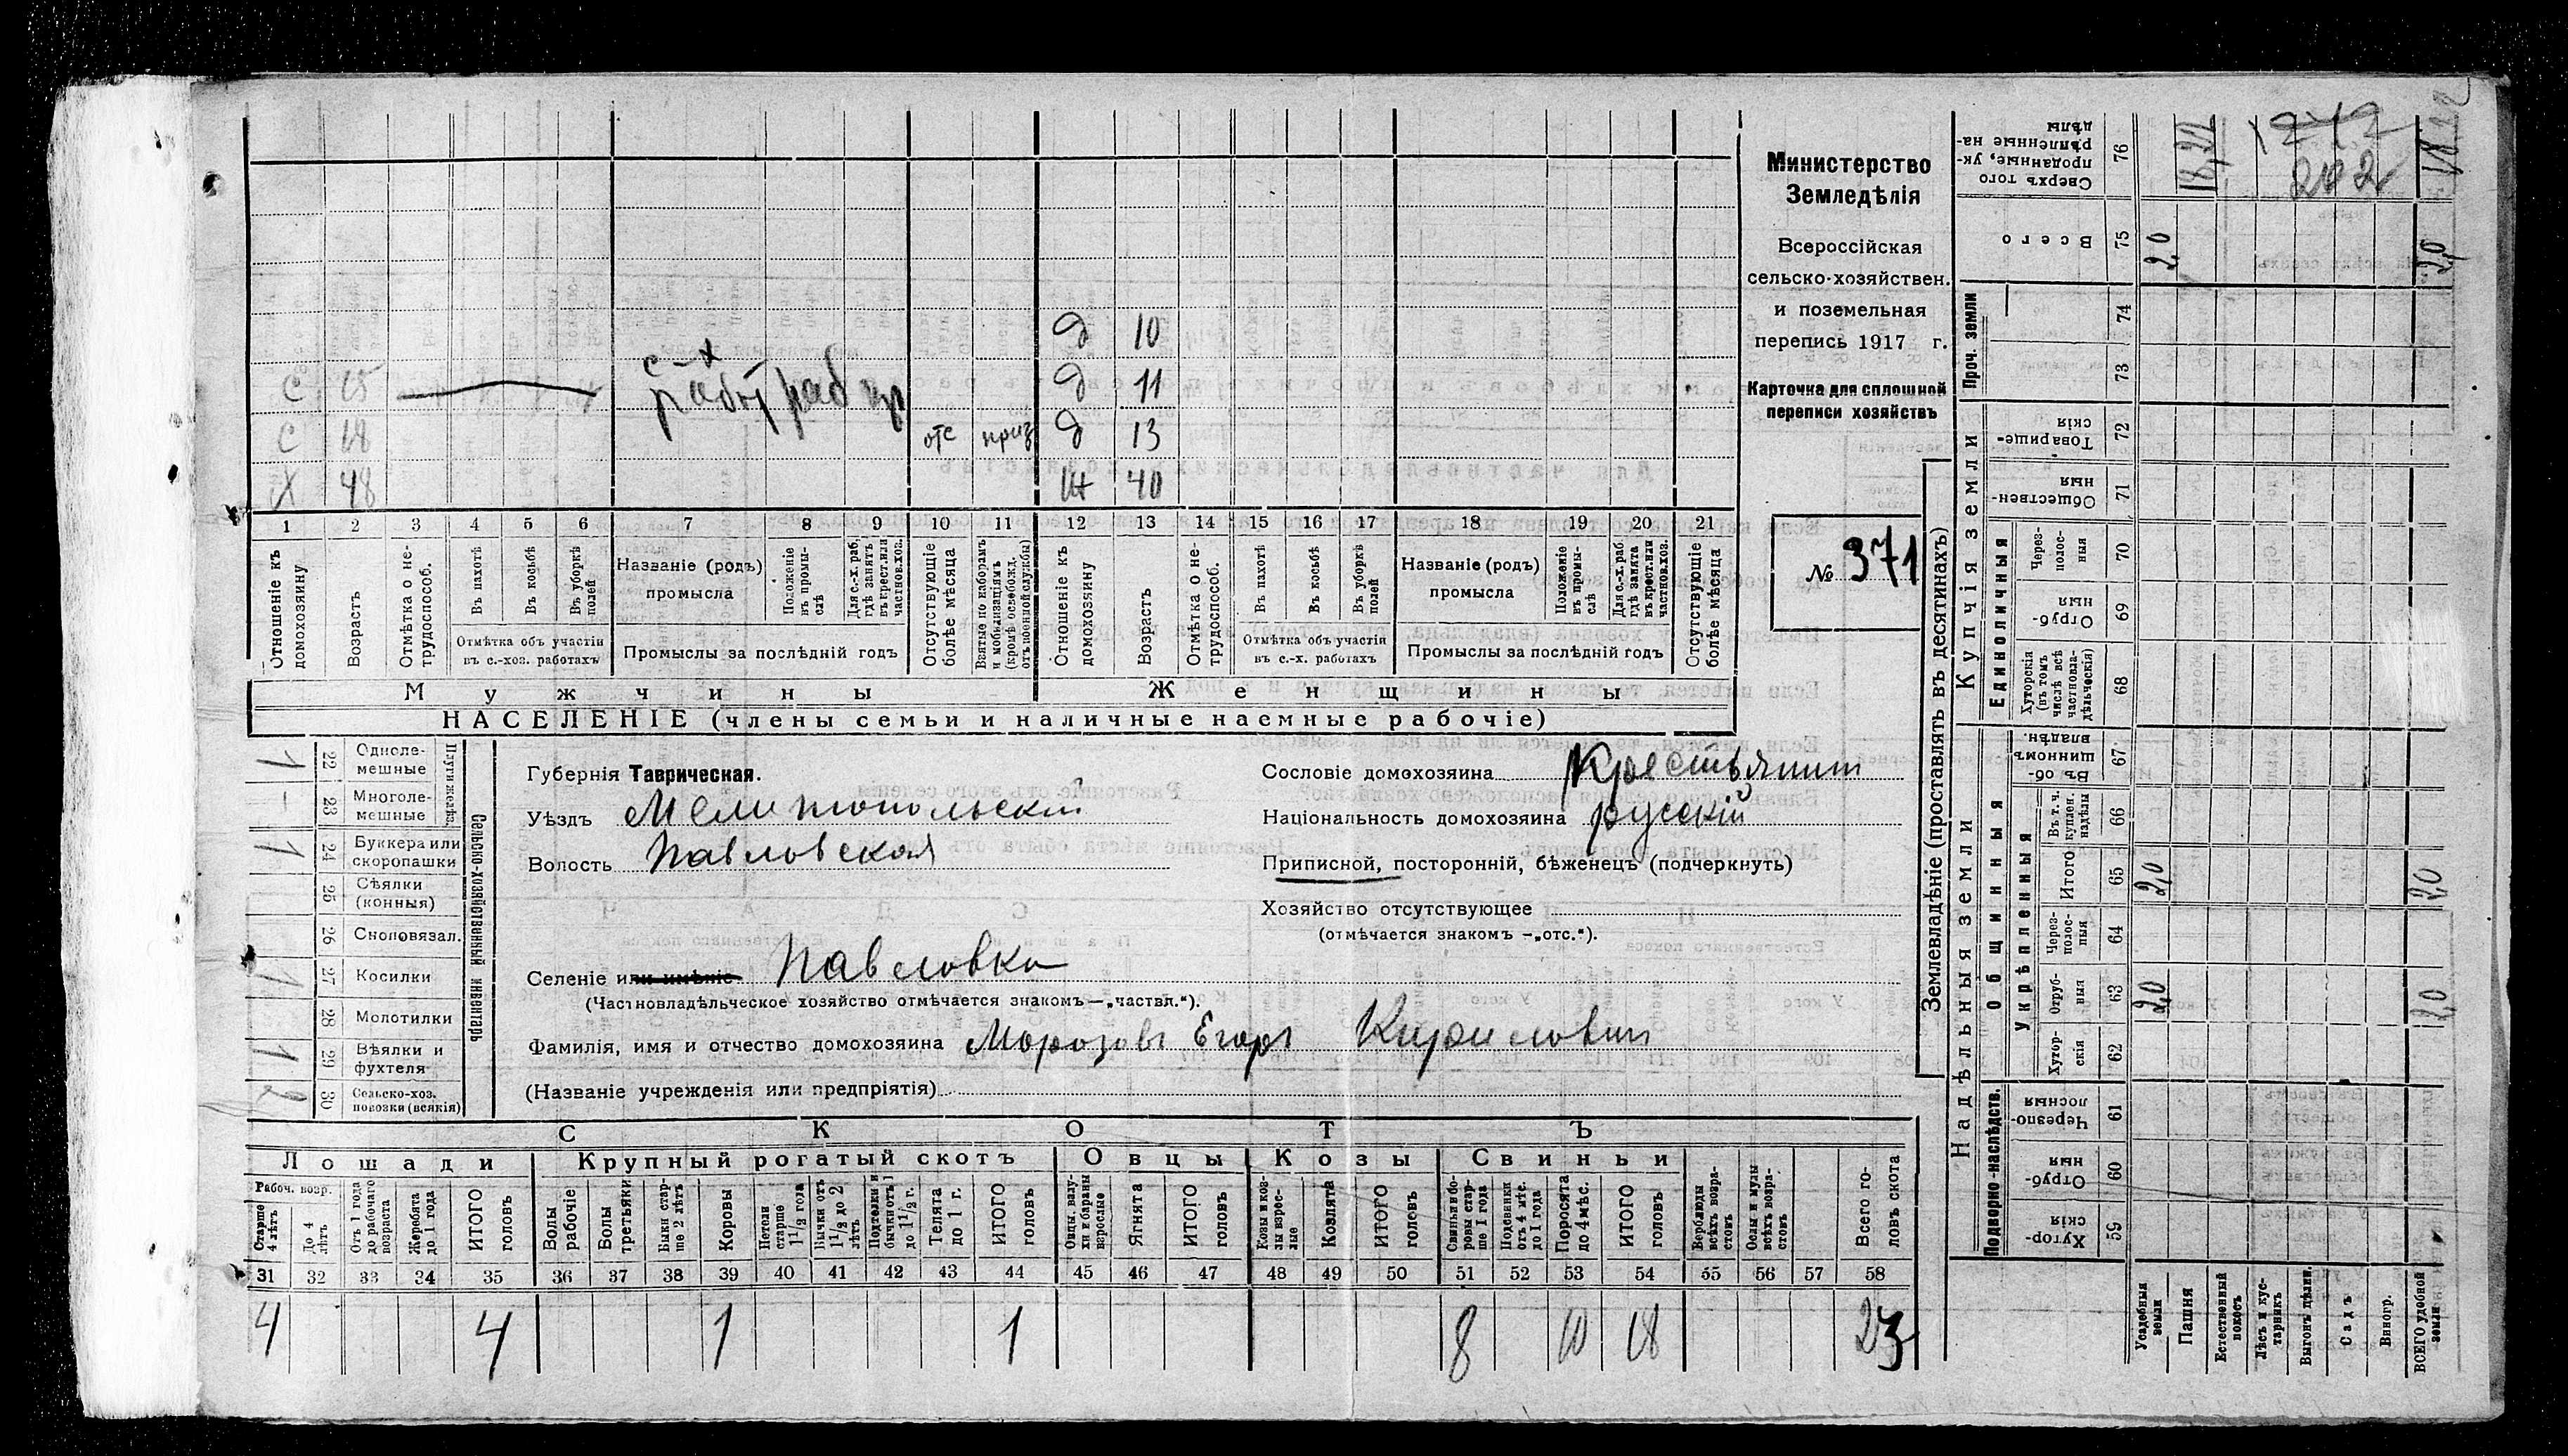 Министерство
Земледѣлія
Всероссійская
сельско-хозяйствен.
и поземельная
перепись 1917 г.
Карточка для сплошной
переписи хозяйствъ
№ 371
д 10
с-х
с 15 д 11
с 18 отс приз д 13
х 48 ж 40
1 2 3 4 5 6 7 8 9 10 11 12 13 14 15 16 17 18 19 20 21
Отношеніе къ домохозяину
Возрастъ
Отмѣтка о нетрудоспособ.
Въ пахотѣ
Въ косьбѣ
Въ уборкѣ полей
Отмѣтка объ участіи
въ с.-хоз. работахъ
Названіе (родъ)
промысла
Положеніе въ промыслѣ
Для с.-х. раб. гдѣ занятъ въ крест. или частнов. хоз.
Промыслы за послѣдній годъ
Отсутствующіе болѣе мѣсяца
Взятые по наборамъ и мобилизаціямъ (кромѣ освобожд. отъ военной службы)
Отношеніе къ домохозяину
Возрастъ
Отмѣтка о нетрудоспособ.
Въ пахотѣ
Въ косьбѣ
Въ уборкѣ полей
Отмѣтка объ участіи
въ с.-х. работахъ
Названіе (родъ)
промысла
Положеніе въ промыслѣ
Для с.-х. раб. гдѣ занята въ крест. или частнов. хоз.
Промыслы за послѣдній годъ
Отсутствующіе болѣе мѣсяца
Мужчины Женщины
НАСЕЛЕНІЕ (члены семьи и наличные наемные рабочіе)
Сельско-хозяйственный инвентарь
22 Одноле-
мешные 1
23 Многоле-
мешные –
24 Буккера или
скоропашки 1
25 Сѣялки
(конныя)
26 Сноповязал.
27 Косилки 1
28 Молотилки
29 Вѣялки и
фухтеля 1
30 Сельско-хоз.
повозки (всякія) 2
Губернія Таврическая.
Уѣздъ Мелитопольскій
Волость Павловская
Селеніе или имѣніе Павловка
(Частновладѣльческое хозяйство отмѣчается знакомъ—„частвл.“).
Фамилія, имя и отчество домохозяина Морозовъ Егоръ Кириловичъ
(Названіе учрежденія или предпріятія)
Сословіе домохозяина Крестьянин
Національность домохозяина русскій
Приписной, посторонній, бѣженецъ (подчеркнуть)
Хозяйство отсутствующее
(отмѣчается знакомъ —„отс.“).
СКОТЪ
Лошади Крупный рогатый скотъ Овцы Козы Свиньи
Рабоч. возр.
Старше 4 лѣтъ
До 4 лѣтъ
Отъ 1 года до рабочаго возраста
Жеребята до 1 года
ИТОГО головъ
Волы рабочіе
Волы третьяки
Быки старше 2 лѣтъ
Коровы
Нетели старше 1½ года
Бычки отъ 1½ до 2 лѣтъ
Подтелки и бычки отъ 1 до 1½ г.
Телята до 1 г.
ИТОГО головъ
Овцы, валухи и бараны взрослые
Ягнята
ИТОГО головъ
Козы и козлы взрослые
Козлята
ИТОГО головъ
Свиньи и боровы старше 1 года
Подсвинки отъ 4 мѣс. до 1 года
Поросята до 4 мѣс.
ИТОГО головъ
Верблюды всѣхъ возрастовъ
Ослы и мулы всѣхъ возрастовъ
Всего головъ скота
31 32 33 34 35 36 37 38 39 40 41 42 43 44 45 46 47 48 49 50 51 52 53 54 55 56 57 58
4 4 1 1 8 10 18 23
Землевладѣніе (проставлять въ десятинахъ)
Надѣльныя земли Купчія земли Проч. земли
Подворно-наслѣдств.
Общинныя
Укрѣпленныя
Единоличныя
59 Хуторскія
60 Отрубныя
61 Черезполосныя
62 Хуторскія
63 Отрубныя 2,0 2,0
64 Черезполосныя
65 Итого 2,0 2,0
66 Въ т. ч. куплен. надѣлы
67 Въ общинномъ владѣн.
68 Хуторскія (въ томъ числѣ всѣ частновладѣльческія)
69 Отрубныя
70 Черезполосныя
71 Общественныя
72 Товарищескія
73
74
75 Всего 2,0 2,0
76 Сверхъ того проданные, укрѣпленные надѣлы 18,22
Усадебныя земли
Пашня
Естественный покосъ
Лѣсъ и кустарникъ
Выгонъ дѣлин.
Садъ
Виногр.
ВСЕГО удобной земли